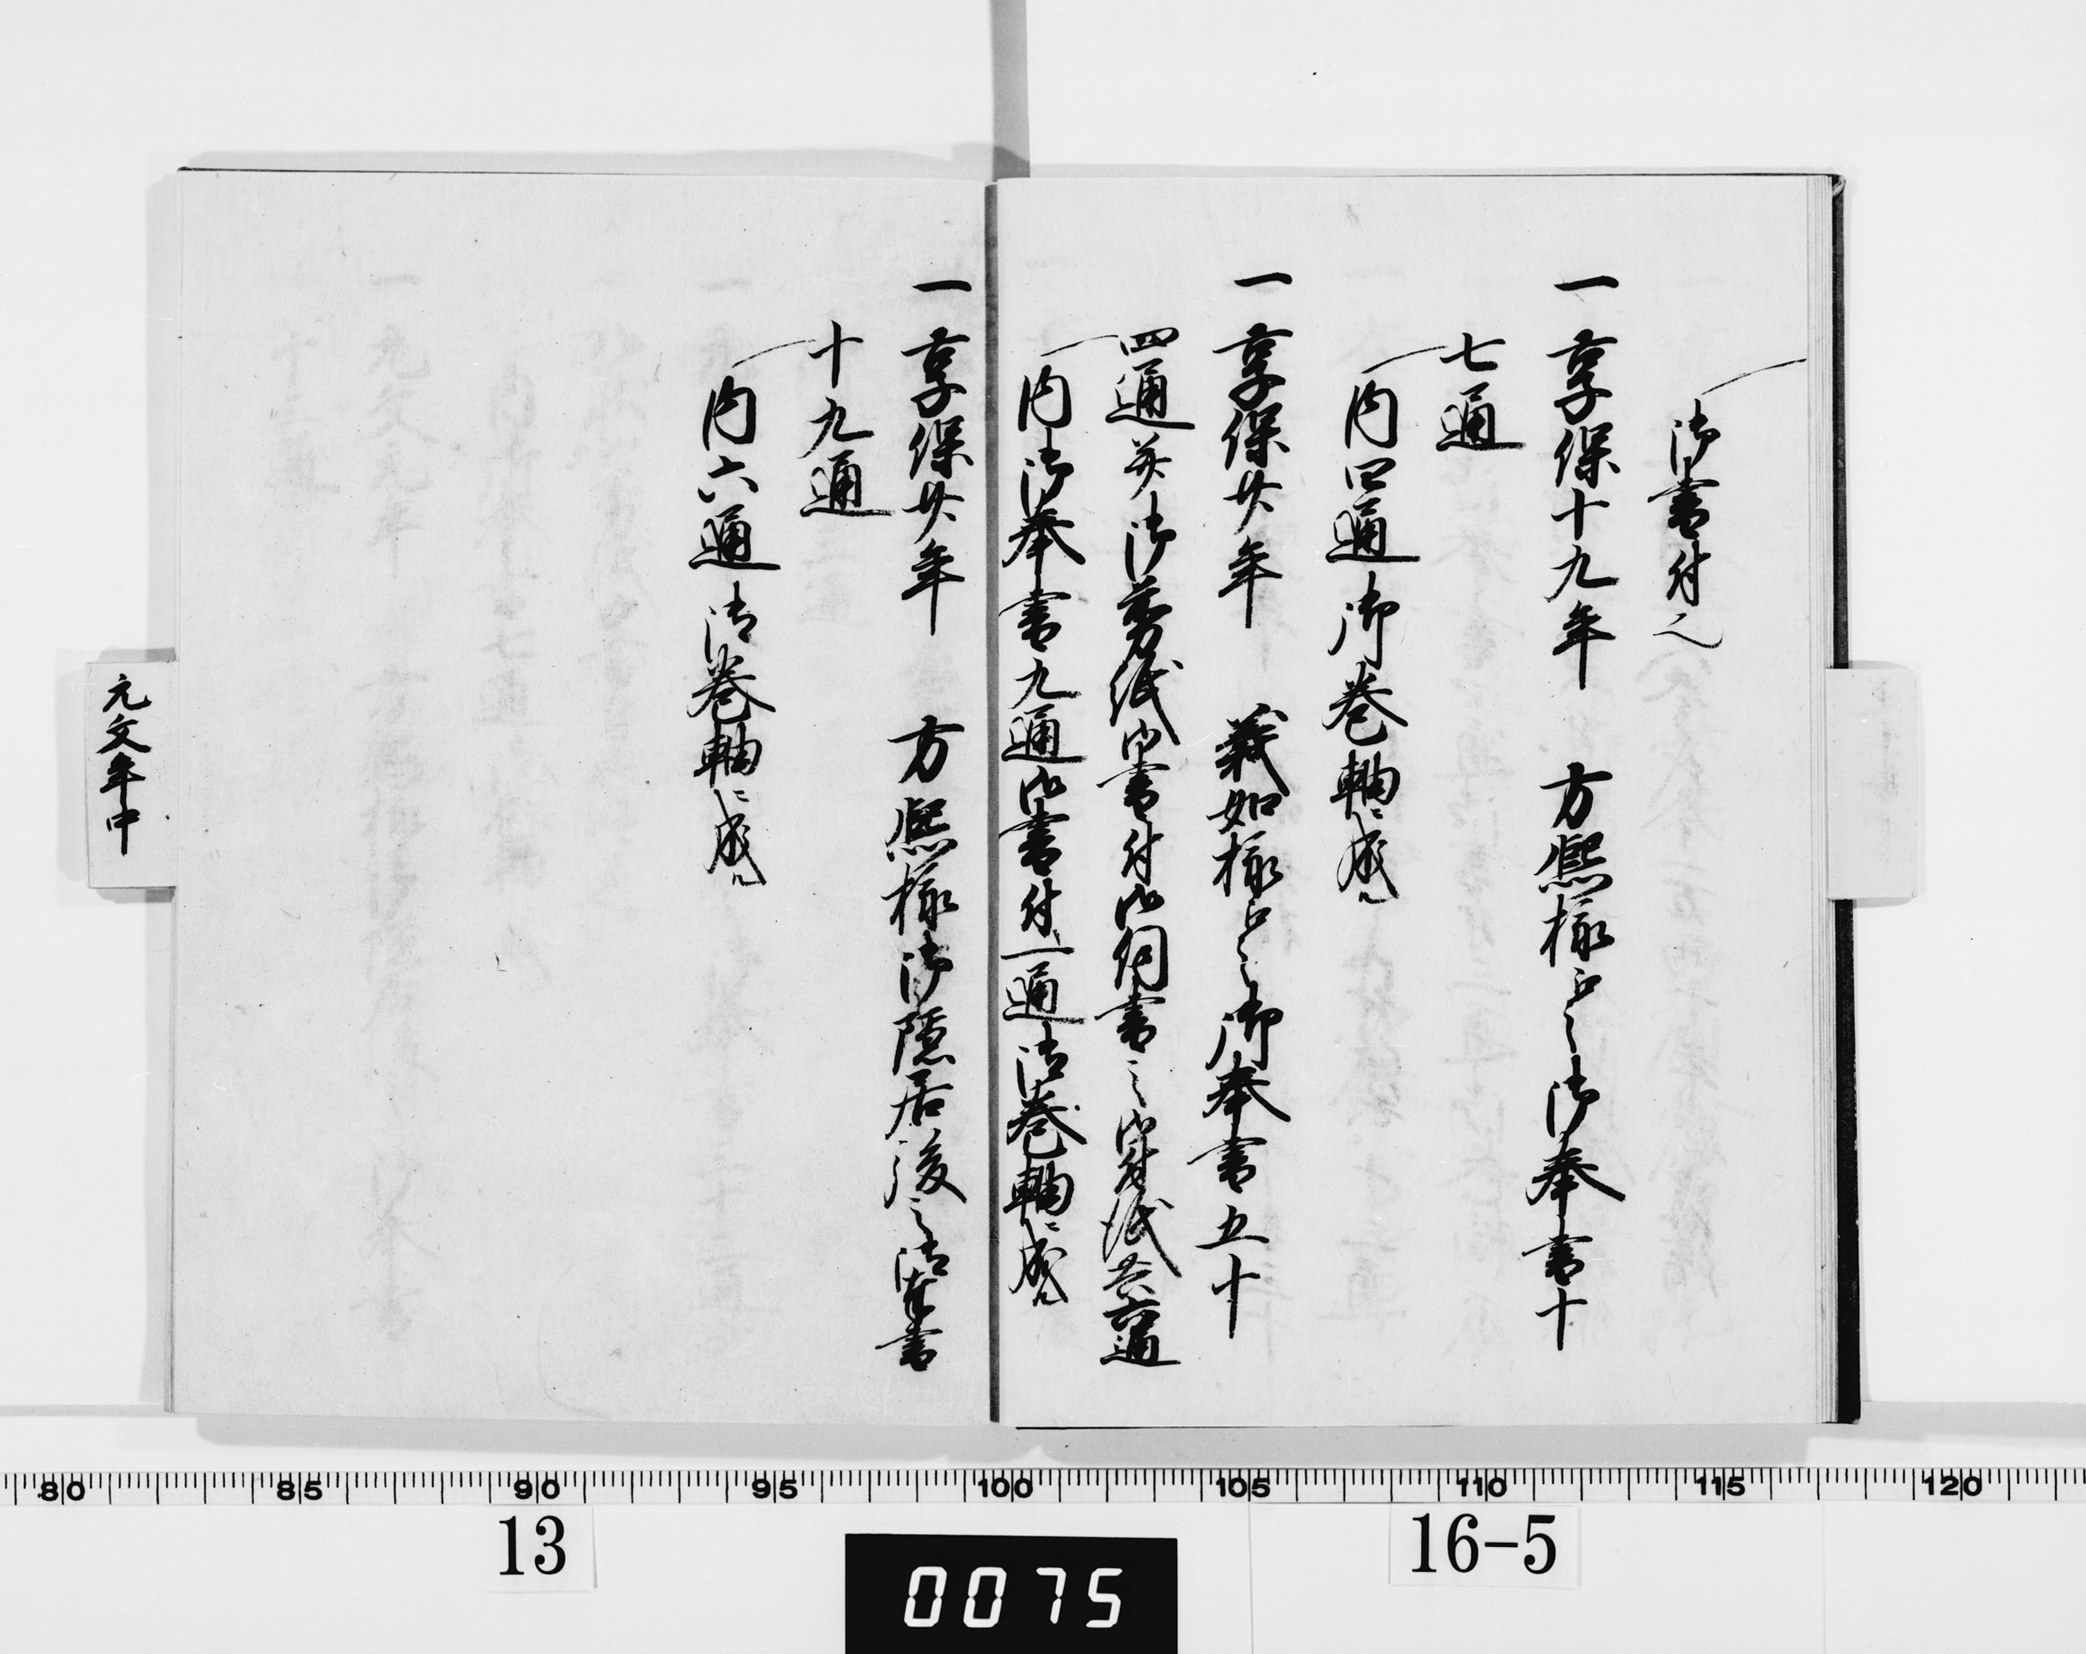 御書付入
一享保十九年　方熈様江之御奉書十
七通
内四通御巻軸ニ成ル
一享保廿年　義如様江之御奉書五十
四通并御剪紙御書付御伺書之御付紙共六通
内御奉書九通御書付一通御巻軸ニ成ル
一享保廿年　方熈様御隠居後之御奉書
十九通
内六通御巻軸ニ成ル
元文年中
80 85 90 95 100 105 110 115 120
13
0075
16-5